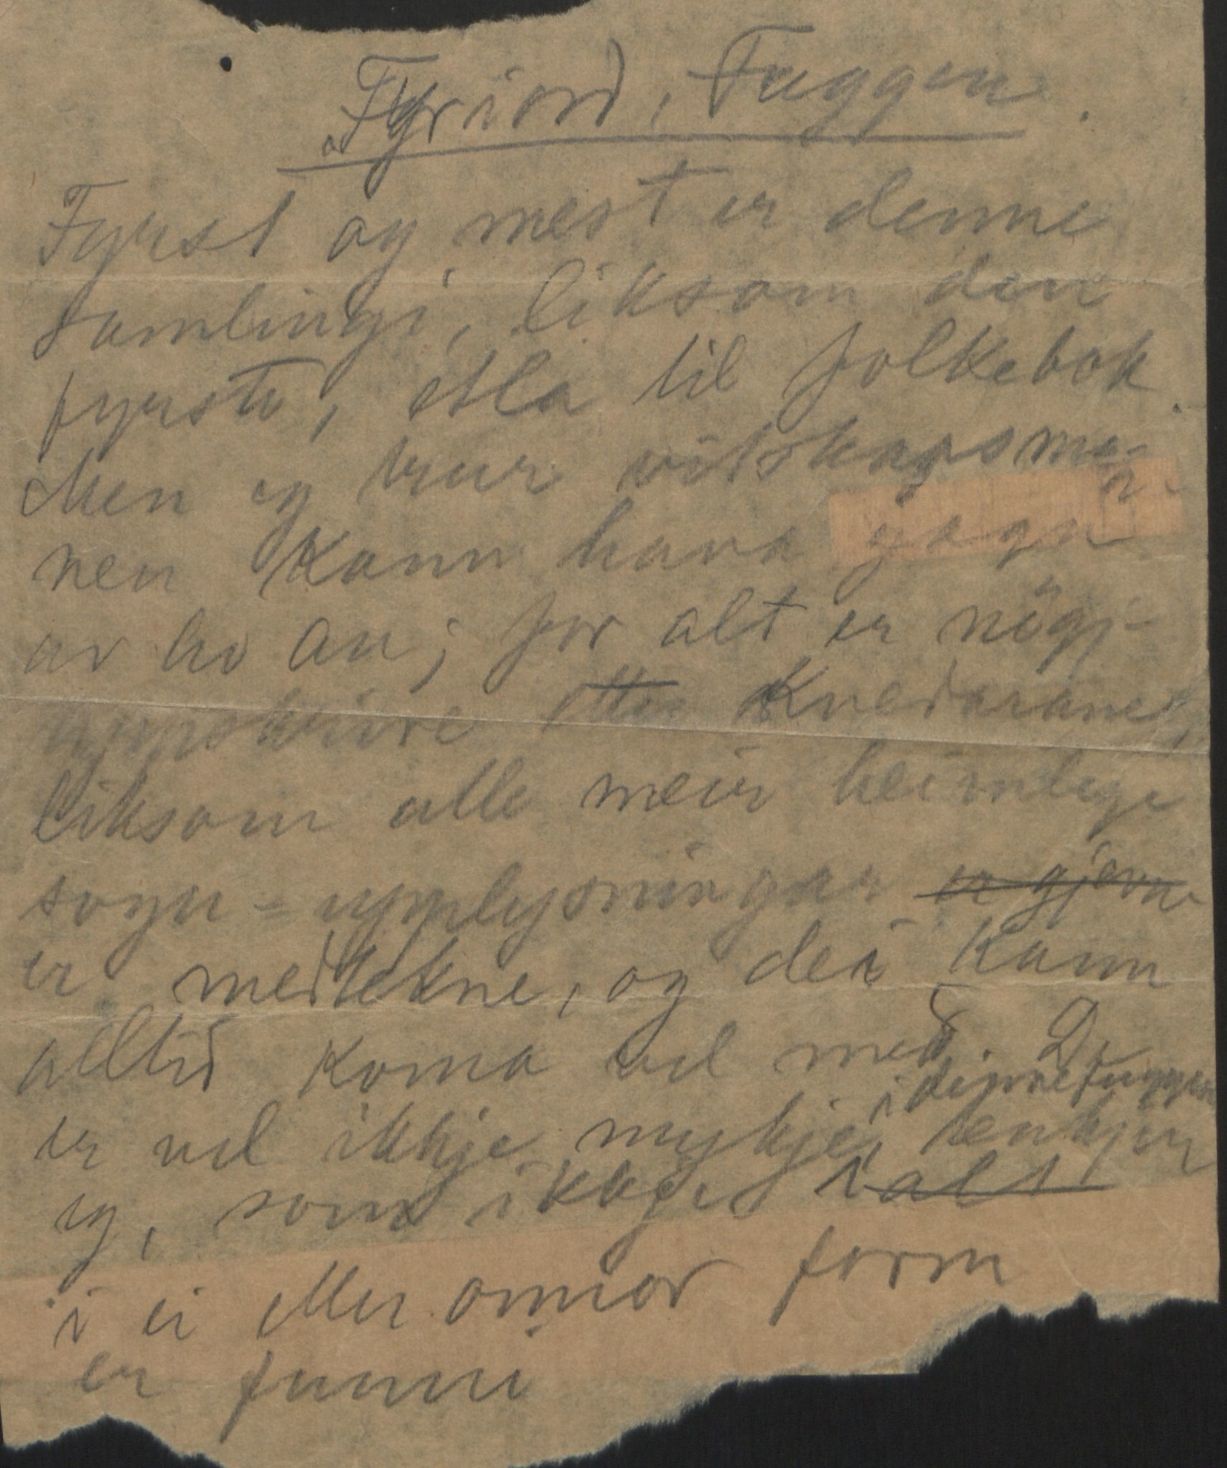 Fyriord, Tuggen.
Fyrst og mest er denne
samlingi, liksom den
fyrste, etla til folkebok.
Men eg trur vitskapsmen-
nen kann hava gagn
av ho au; for alt er nøgje
uppskrive etter kvedarane,
liksom alle meir heimlege
sogu-upplysningar er gjerne
er medtekne, og dei kann
alltid koma vel med. D
er vel ikkje mykje, i denne tuggen tenkjer
eg, som ikkje i alt
i ei eller onnor form
er funni